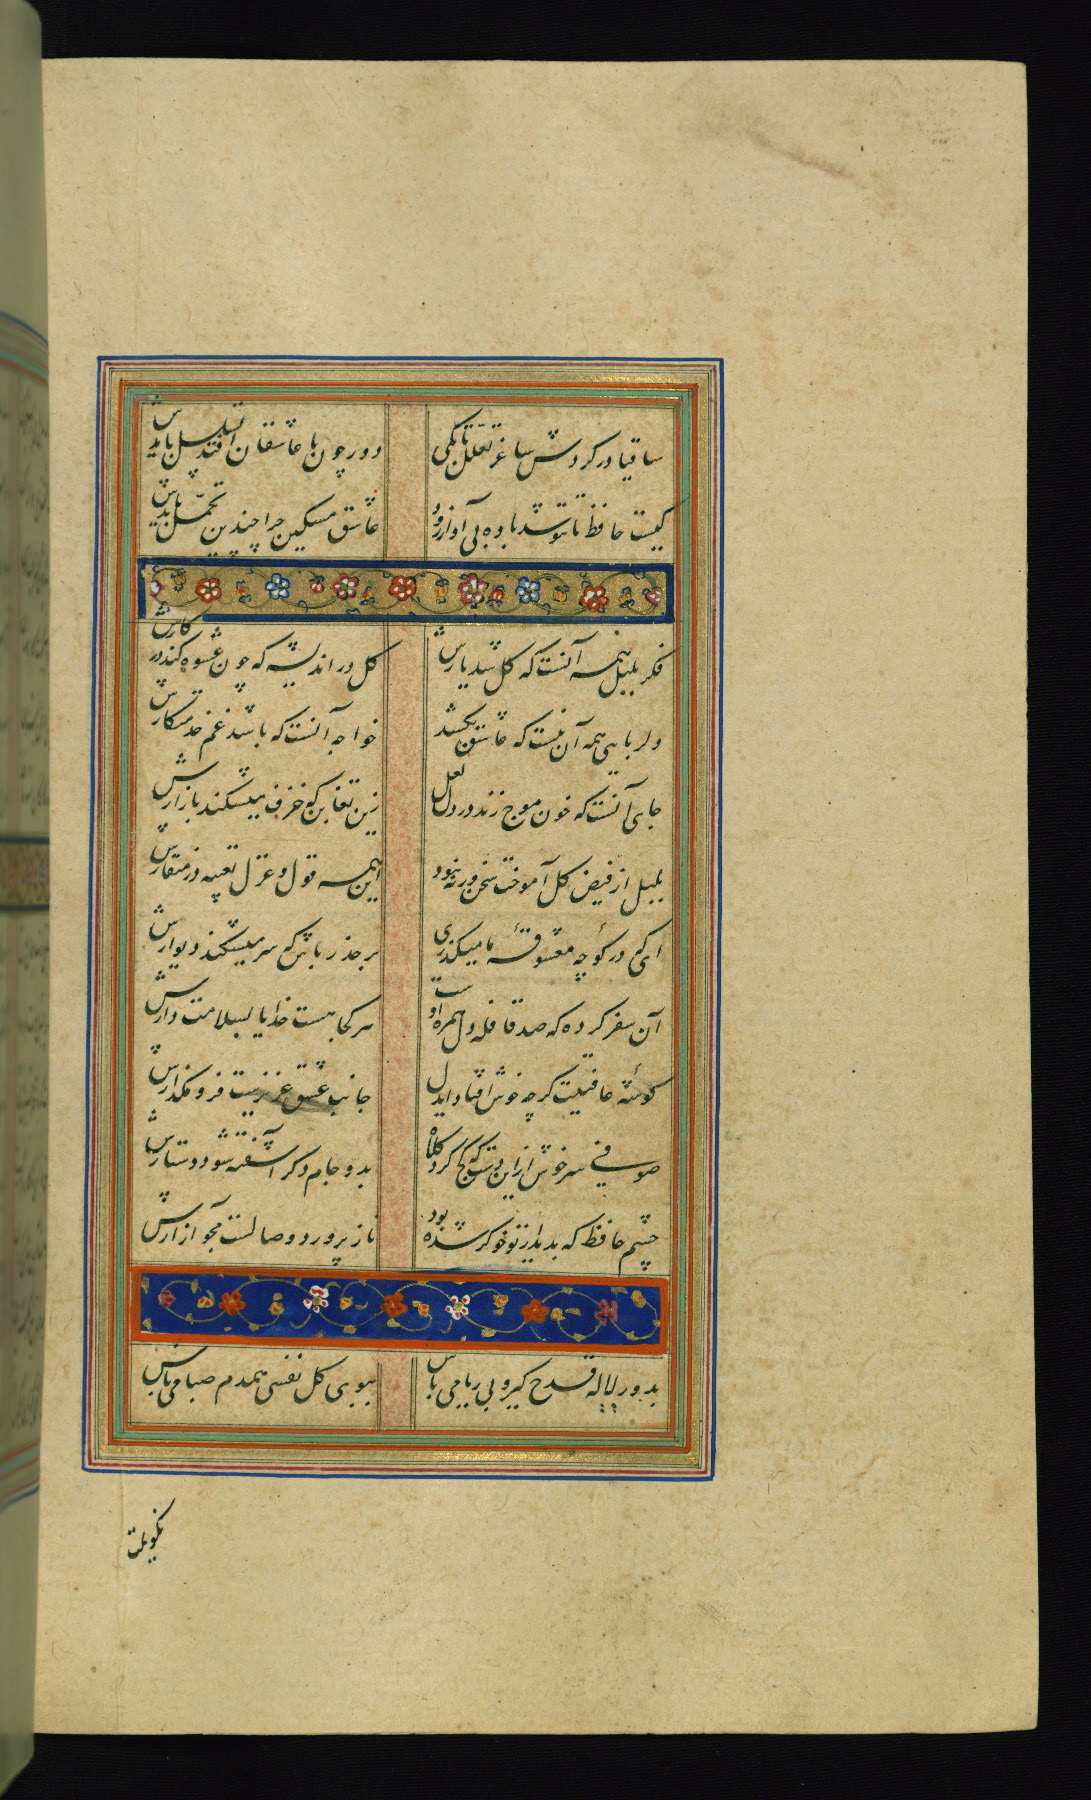 ساقیا در گردش ساغر تعلل تا بکی
دور چون با عاشقان افتد تسلسل بایدش
کیست حافظ تا ننوشد باده بی آواز رود
عاشق مسکین چرا چندین تحمل بایدش
فکر بلبل همه آنست که گل شد یارش
گل در اندیشه که چون عشوه کند در کارش
دلربایی همه آن نیست که عاشق بکشد
خواجه آنست که باشد غم خدمتکارش
جای آنست که خون موج زند در دل لعل
زین تغابن که خزف میشکند بازارش
بلبل از فیض گل آموخت سخن ورنه نبود
این همه قول و غزل تعبیه در منقارش
ای که در کوچه معشوقهٔ ما میگذری
بر حذر باش که سر میشکند دیوارش
آن سفر کرده که صد قافله دل همره اوست
هر کجا هست خدایا بسلامت دارش
گوشهٔ عافیتت گرچه خوش افتاد ایدل
جانب عشق عزیزست فرو مگذارش
صوفی سرخوش از این دست که کج کرد کلاه
بدو جام دگر آشفته شود دستارش
چشم حافظ که بدیدار تو خوگر شده بود
ناز پرورد وصالست مجو آزارش
بدور لاله قدح گیر و بی ریا می باش
ببوی گل نفسی همدم صبا می باش
نگویمت